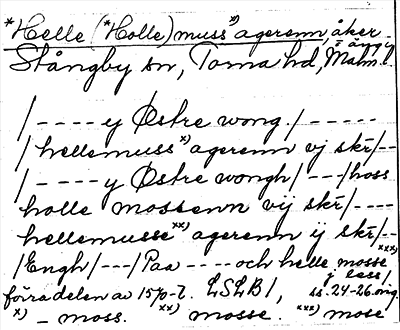 *Helle (*Holle) muss x) agerenn, åker
Stångby sn, Torna hd, Malm.
/ - - - - y Østre wong. / - - - - -
/ hellemuss x) agerenn vj skr / - -
/ - - - - y Østre wongh / - - - / hoss
holle mossenn vij skr / - - - -
hellemusse xx) agerenn ij skr / - -
/ Engh / - - - / Paa - - - - och helle mosse xxx)
förra delen av 1570-t. LSLB 1, ss. 24-26. orig.
x) - moss. xx) mosse. xxx) mose